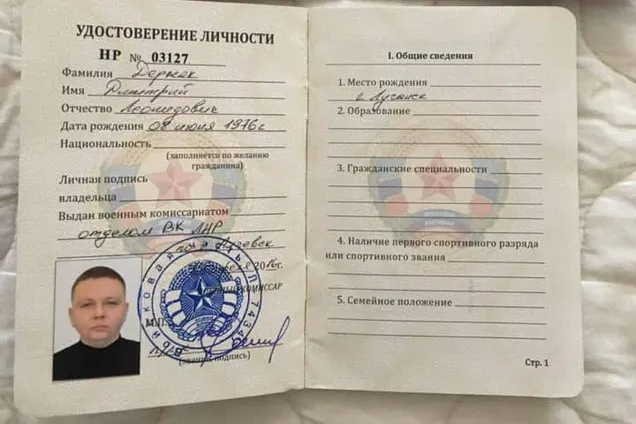 УДОСТОВЕРЕНИЕ ЛИЧНОСТИ
НР № 03127
Фамилия
Имя Дмитрий
Отчество Леонидович
Дата рождения 08 июня 1976г
Национальность
(заполняется по желанию
гражданина)
Личная подпись
владельца
Выдан военным комиссариатом
отделом ВК ЛНР
М.П.
(звание, подпись)
I. Общие сведения
1. Место рождения
г Луганск
2. Образование
3. Гражданские специальности
4. Наличие первого спортивного разряда
или спортивного звания
5. Семейное положение
Стр. 1